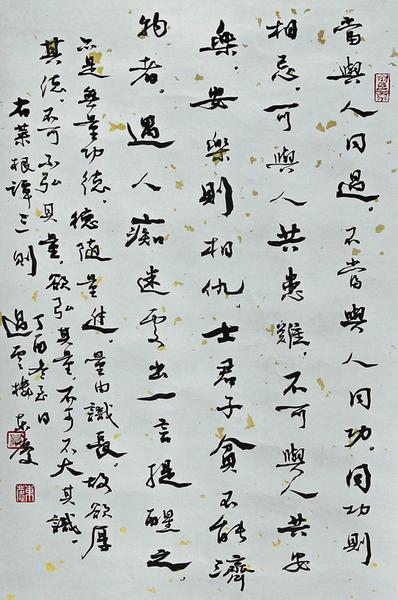 當與人同過。不當與人同功。同功則
相忌。可與人共患難。不可與人共安
樂。安樂則相仇。士君子貧不能濟
物者。遇人痴迷處出一言提醒之。
亦是無量功德。德隨量進。量由識長。故欲厚
其德。不可不弘其量。欲弘其量不可不大其識。
右菜根譚三則
丁酉冬至日
過雲樓